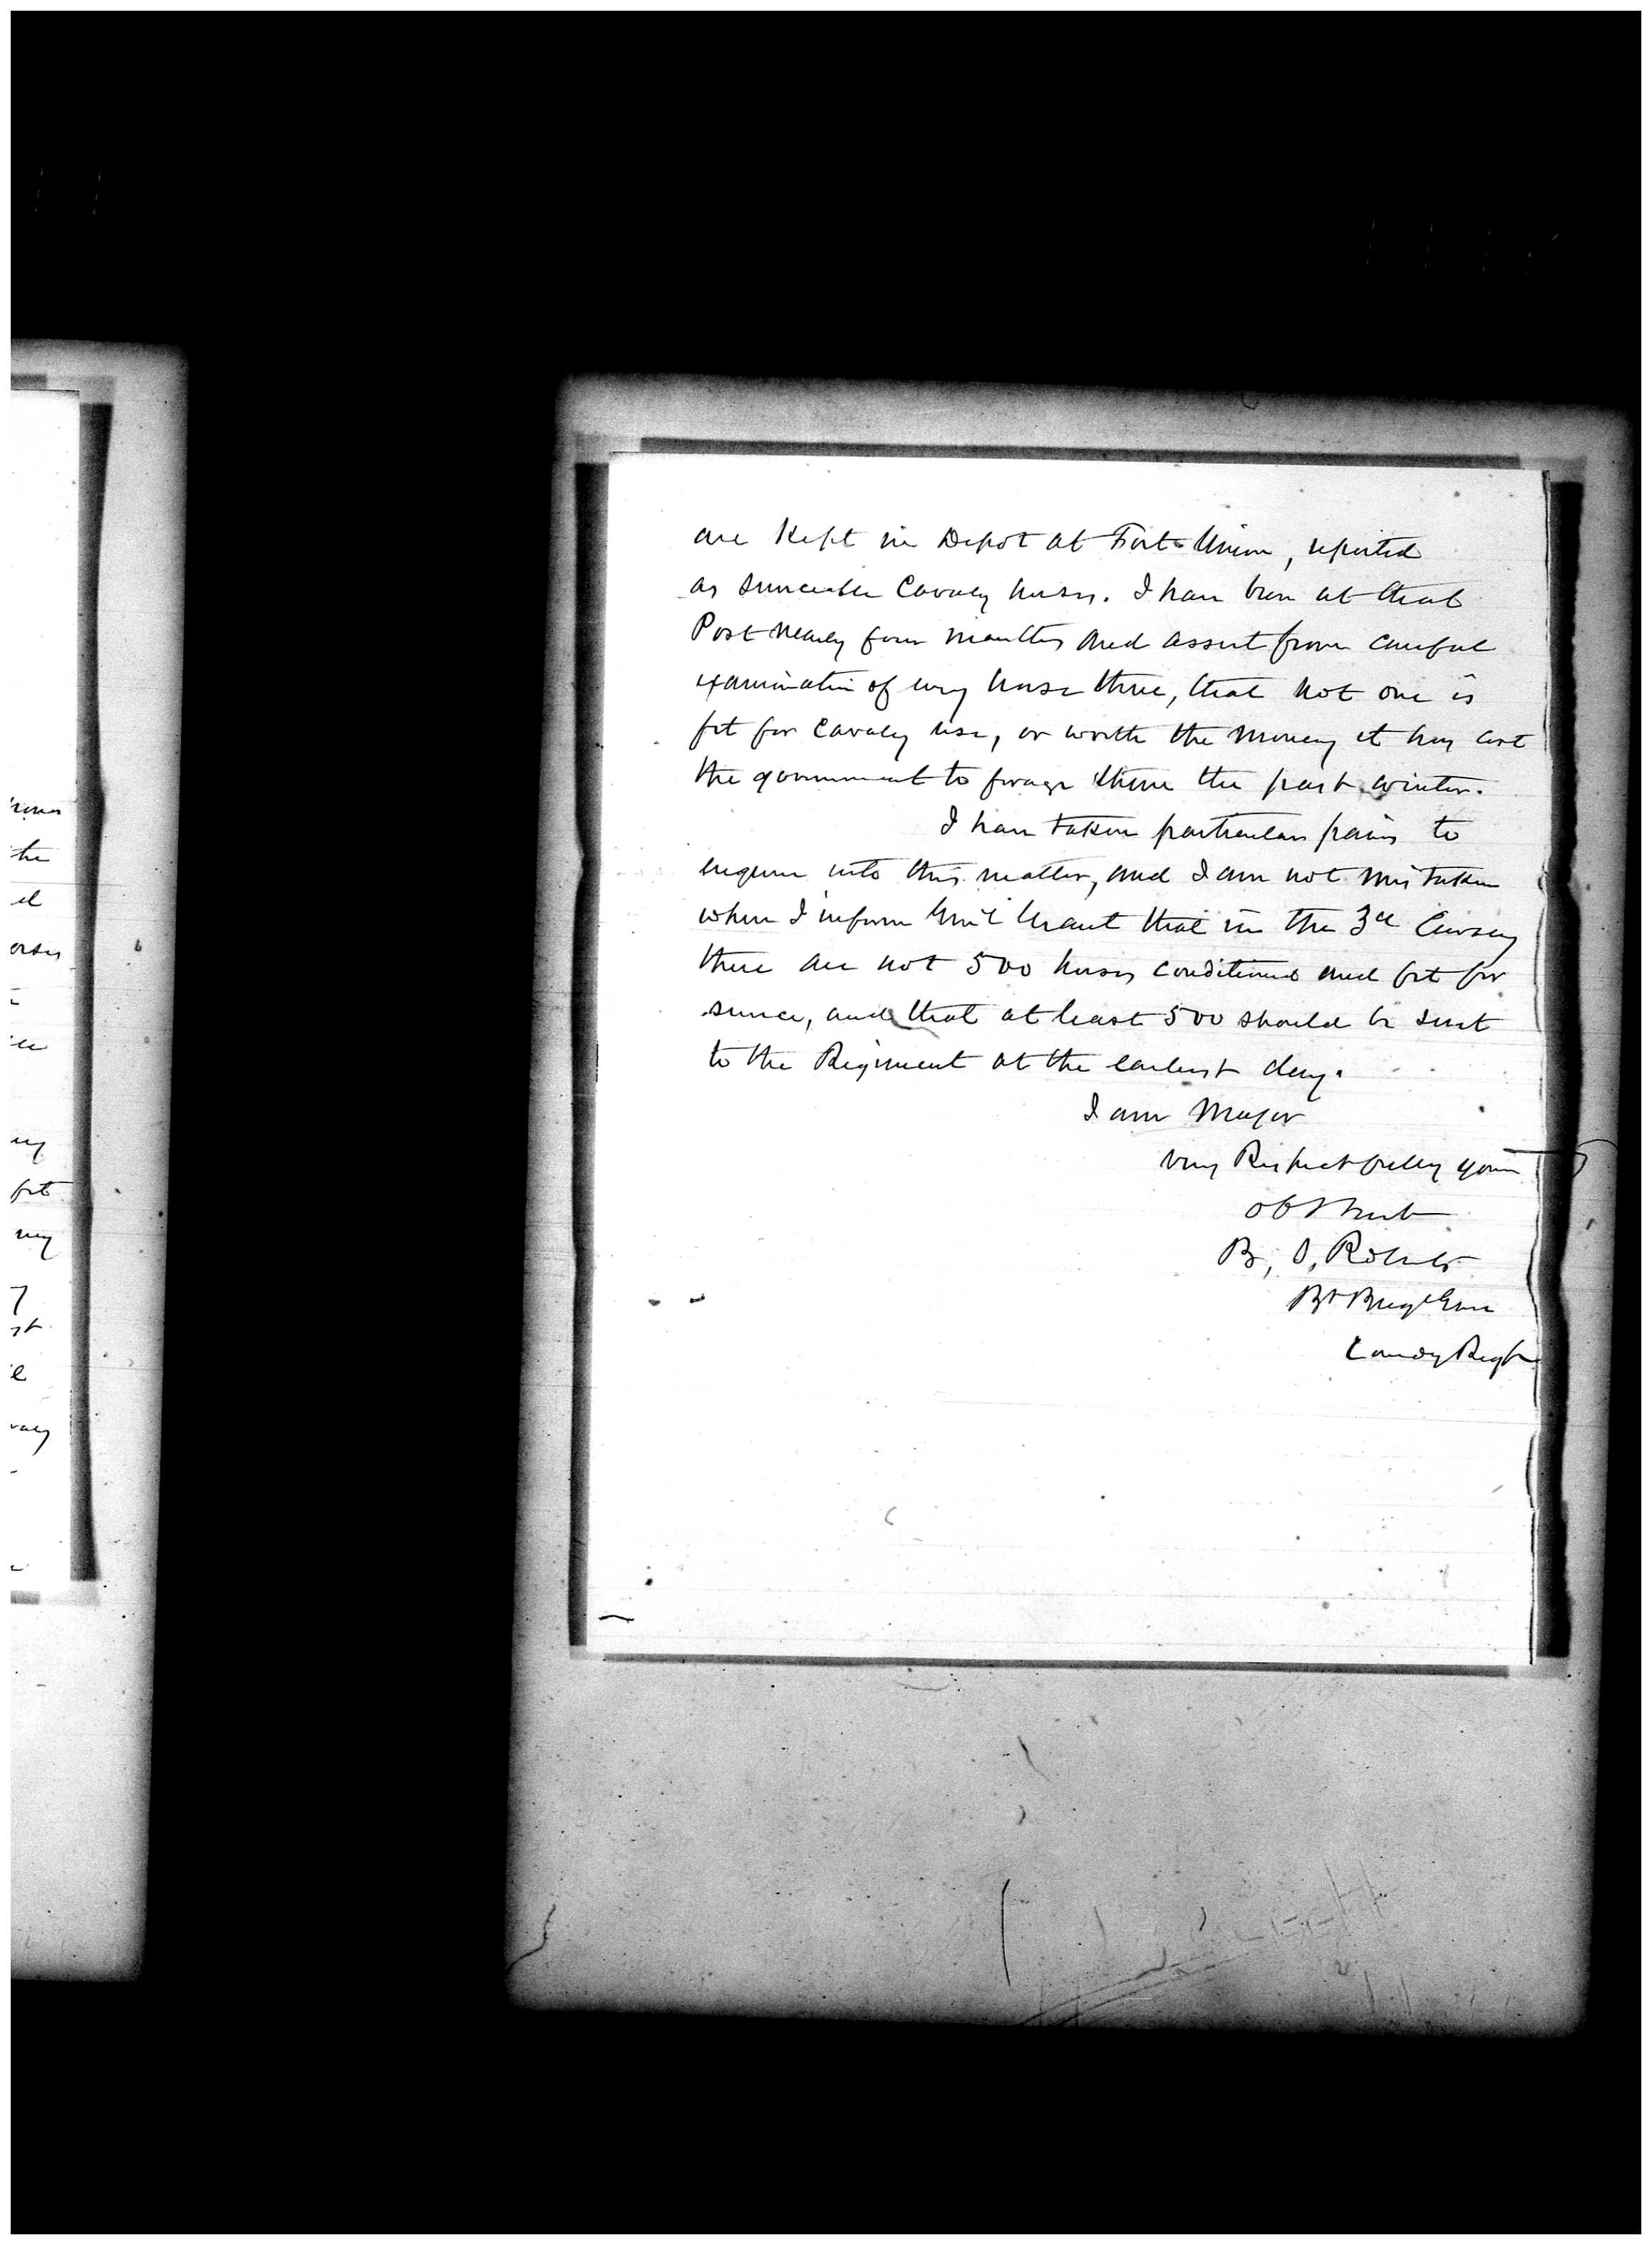 are Kept in Depot at Fort Union, reported
as serviceable Cavalry horses. I have been at that
Post nearly four months and assert from careful
examination of every horse there, that not one is
fit for Cavalry use, or worth the money it has cost
the government to forage there the past winter.
I have taken particular pains to
enquire into this matter, and I am not mistaken
when I inform Gen'l Grant that in the 3d Cavalry
there are not 500 horses conditioned and fit for
service, and that at least 500 should be sent
to the Regiment at the earliest day.
I am Major
Very Respectfully your
Obt Servt
B, S, Roberts
Bt Brig Genl
Comdg Regt
the
fit